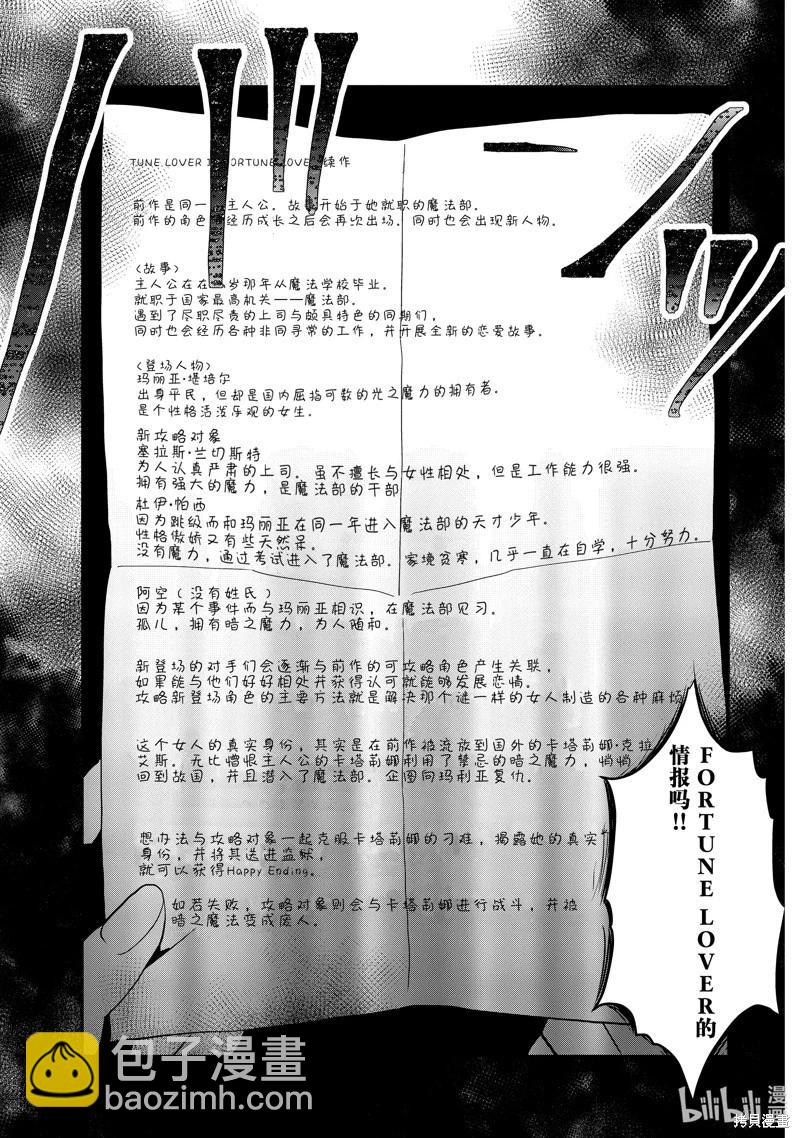 TUNE LOVER II ORTUNE LOVE 续作
前作是同一 主人公。故事开始于她就职的魔法部。
前作的角色 经历成长之后会再次出场。同时也会出现新人物。
〈故事〉
主人公在在 岁那年从魔法学校毕业。
就职于国家最高机关——魔法部。
遇到了尽职尽责的上司与颇具特色的同期们，
同时也会经历各种非同寻常的工作，并开展全新的恋爱故事。
〈登场人物〉
玛丽亚·堪培尔
出身平民，但却是国内屈指可数的光之魔力的拥有者。
是个性格活泼乐观的女生。
新攻略对象
塞拉斯·兰切斯特
为人认真严肃的上司。虽不擅长与女性相处，但是工作能力很强。
拥有强大的魔力，是魔法部的干部
杜伊·帕西
因为跳级而和玛丽亚在同一年进入魔法部的天才少年。
性格傲娇又有些天然呆。
没有魔力，通过考试进入了魔法部。家境贫寒，几乎一直在自学，十分努力。
阿空（没有姓氏）
因为某个事件而与玛丽亚相识，在魔法部见习。
孤儿，拥有暗之魔力，为人随和。
新登场的对手们会逐渐与前作的可攻略角色产生关联，
如果能与他们好好相处并获得认可就能够发展恋情。
攻略新登场角色的主要方法就是解决那个谜一样的女人制造的各种麻烦
这个女人的真实身份，其实是在前作被流放到国外的卡塔莉娜·克拉
艾斯。无比憎恨主人公的卡塔莉娜利用了禁忌的暗之魔力，悄悄
回到故国，并且潜入了魔法部。企图向玛利亚复仇。
想办法与攻略对象一起克服卡塔莉娜的刁难，揭露她的真实
身份，并将其送进监狱，
就可以获得Happy Ending。
如若失败，攻略对象则会与卡塔莉娜进行战斗，并被
暗之魔法变成废人。
FORTUNE LOVER的
情报吗!!
包子漫畫
baozimh.com
bilibili 漫画
拷貝漫畫